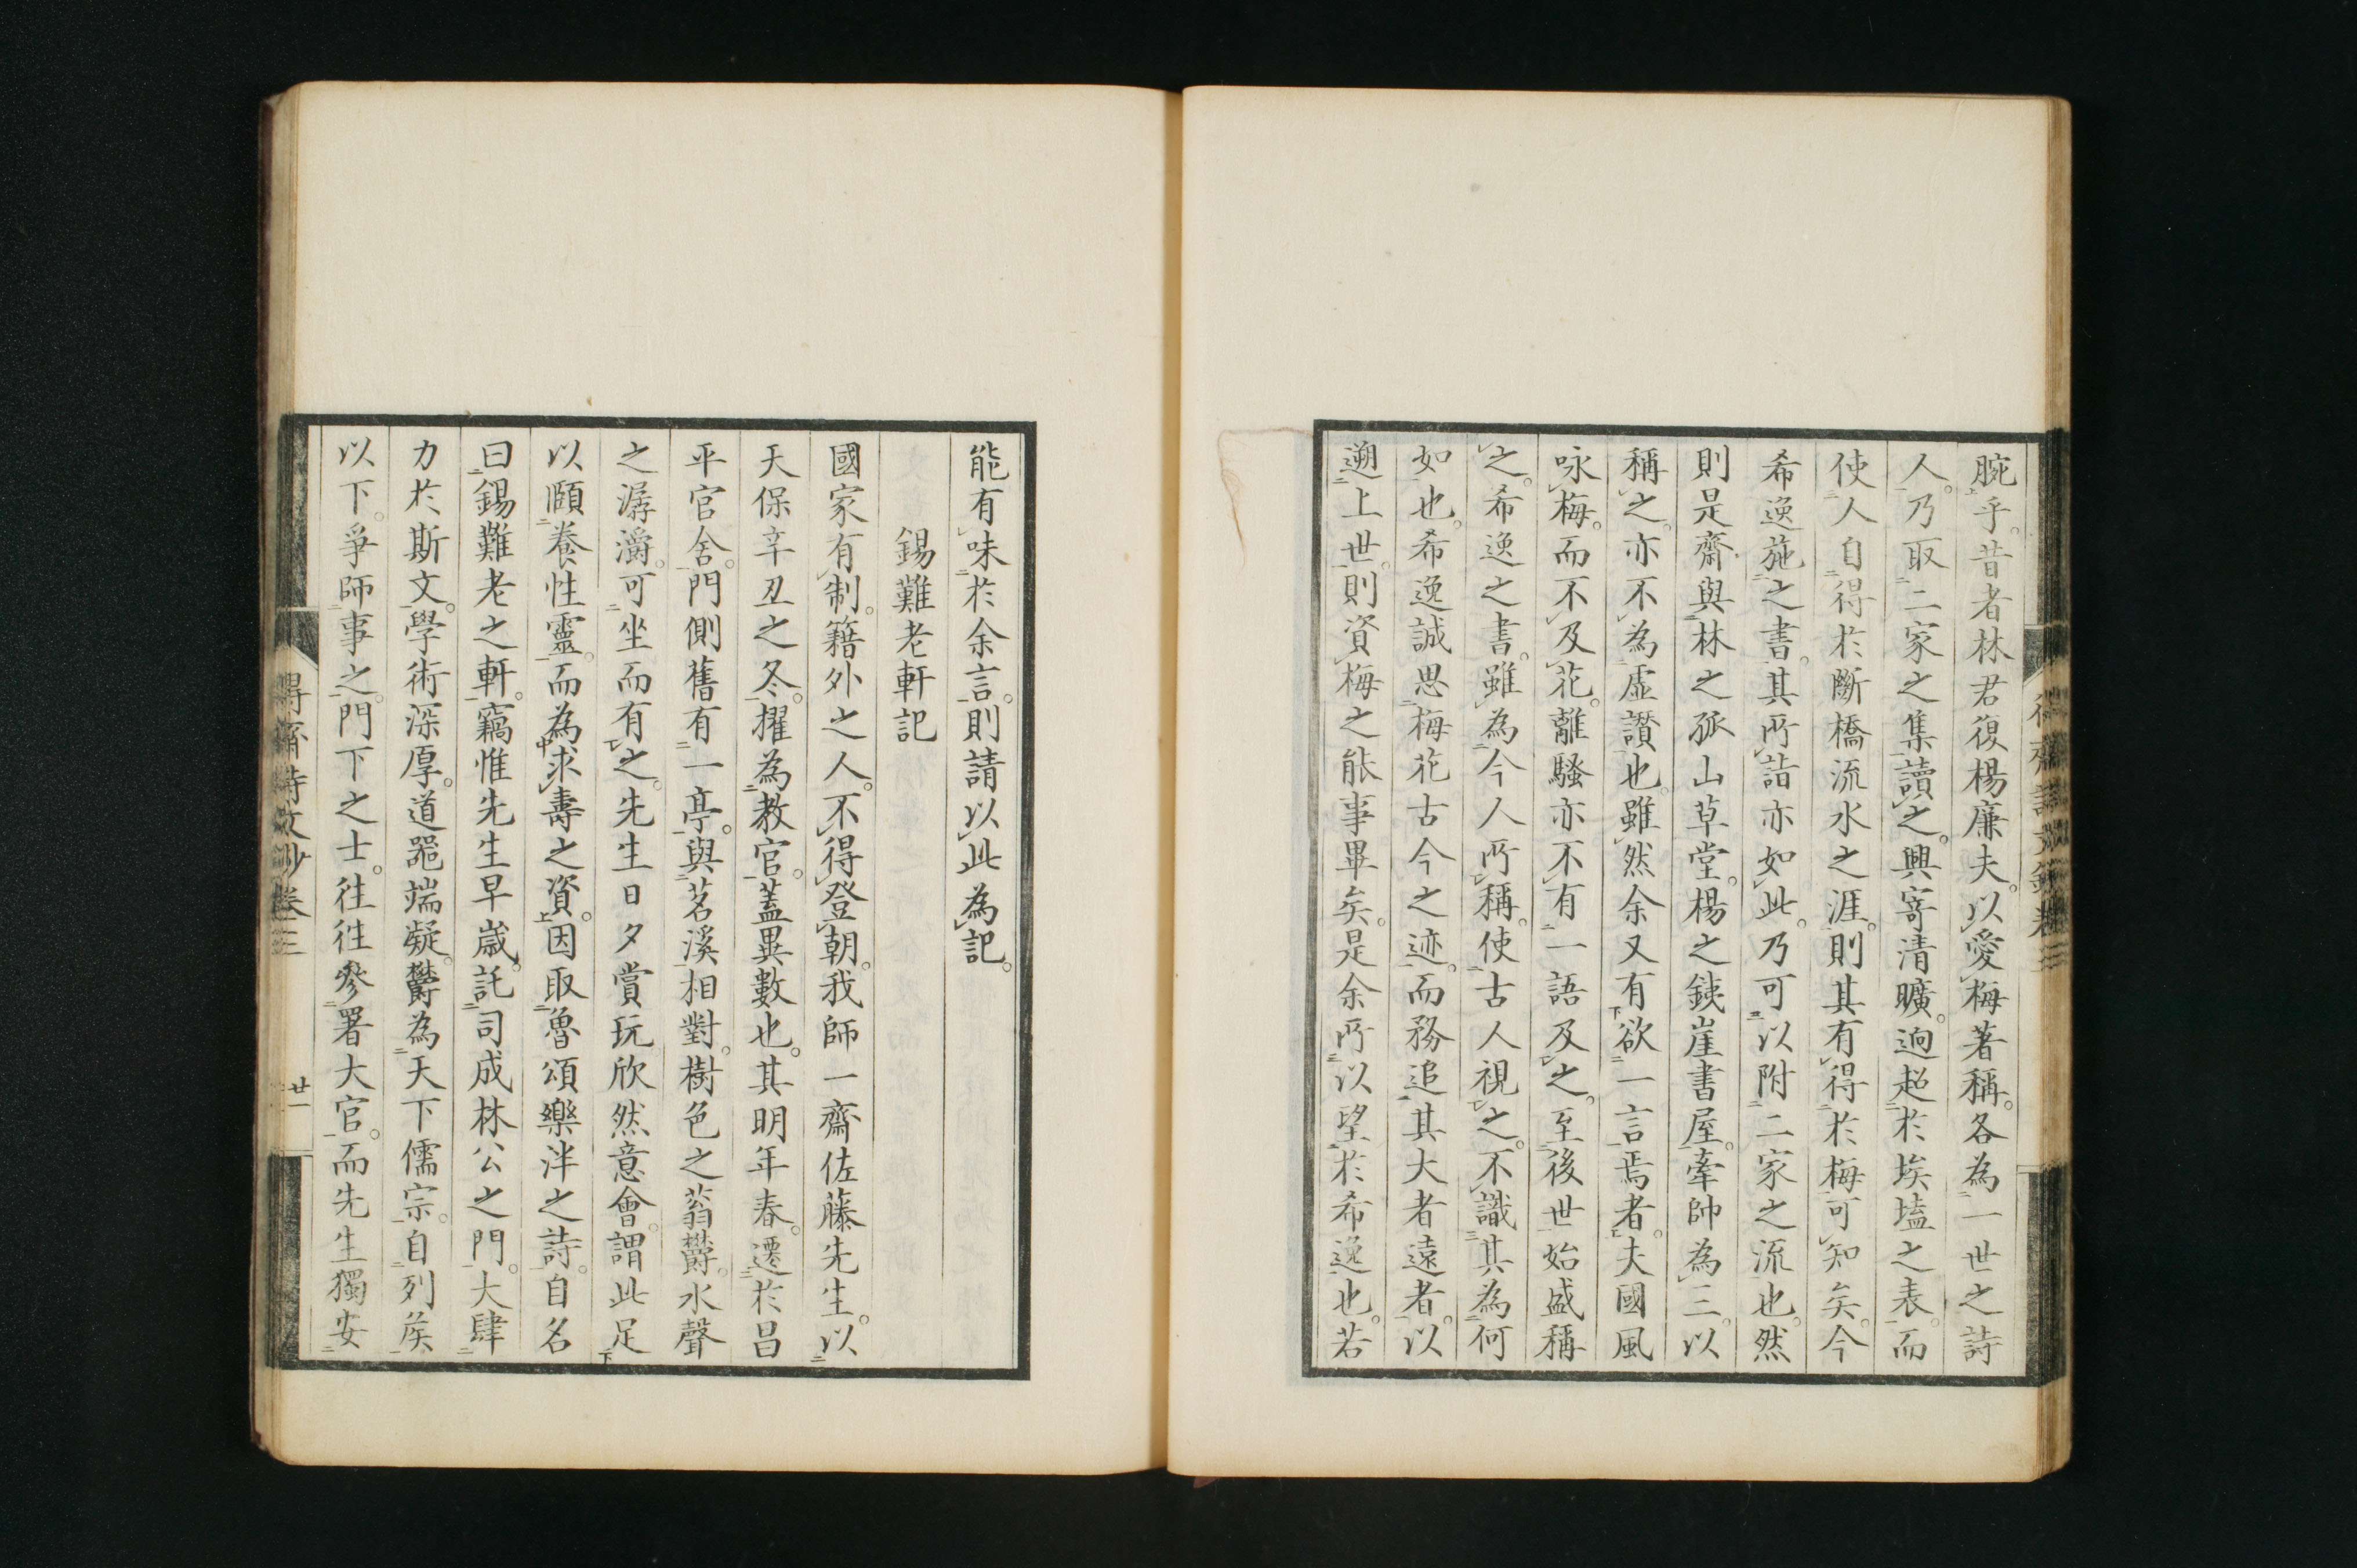 腕乎。昔者林君復楊廉夫。以愛梅著稱。各為一世之詩
人。乃取二家之集讀之。興寄清曠。逈超於埃壒之表。而
使人自得於斷橋流水之涯。則其有得於梅可知矣。今
希逸施之書。其所詣亦如此。乃可以附二家之流也。然
則是齋與林之孤山草堂。楊之鐵崖書屋。牽帥為三。以
稱之。亦不為虛讃也。雖然余又有欲一言焉者。夫國風
咏梅。而不及花。離騷亦不有一語及之。至後世始盛稱
之。希逸之書。雖為今人所稱。使古人視之。不識其為何
如也。希逸誠思梅花古今之迹。而務追其大者遠者。以
遡上世。則資梅之能事畢矣。是余所以望於希逸也。若
能有味於余言。則請以此為記。
錫難老軒記
國家有制。籍外之人。不得登朝。我師一齋佐藤先生。以
天保辛丑之冬。擢為教官。蓋異數也。其明年春。遷於昌
平官舍。門側舊有一亭。與茗溪相對。樹色之蓊欝。水聲
之潺灂。可坐而有之。先生日夕賞玩欣然意會。謂此足
以頤養性靈。而為求壽之資。因取魯頌樂泮之詩。自名
曰錫難老之軒。竊惟先生早歲。託司成林公之門。大肆
力於斯文。學術深厚。道器端凝。欝為天下儒宗。自列矦
以下。爭師事之。門下之士。往往參署大官。而先生獨安
得齋詩文鈔卷三
廿一